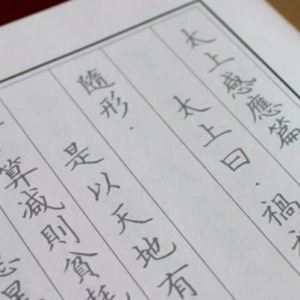 太上感應篇
太上曰.禍
隨形.是以天地有
算減則貧